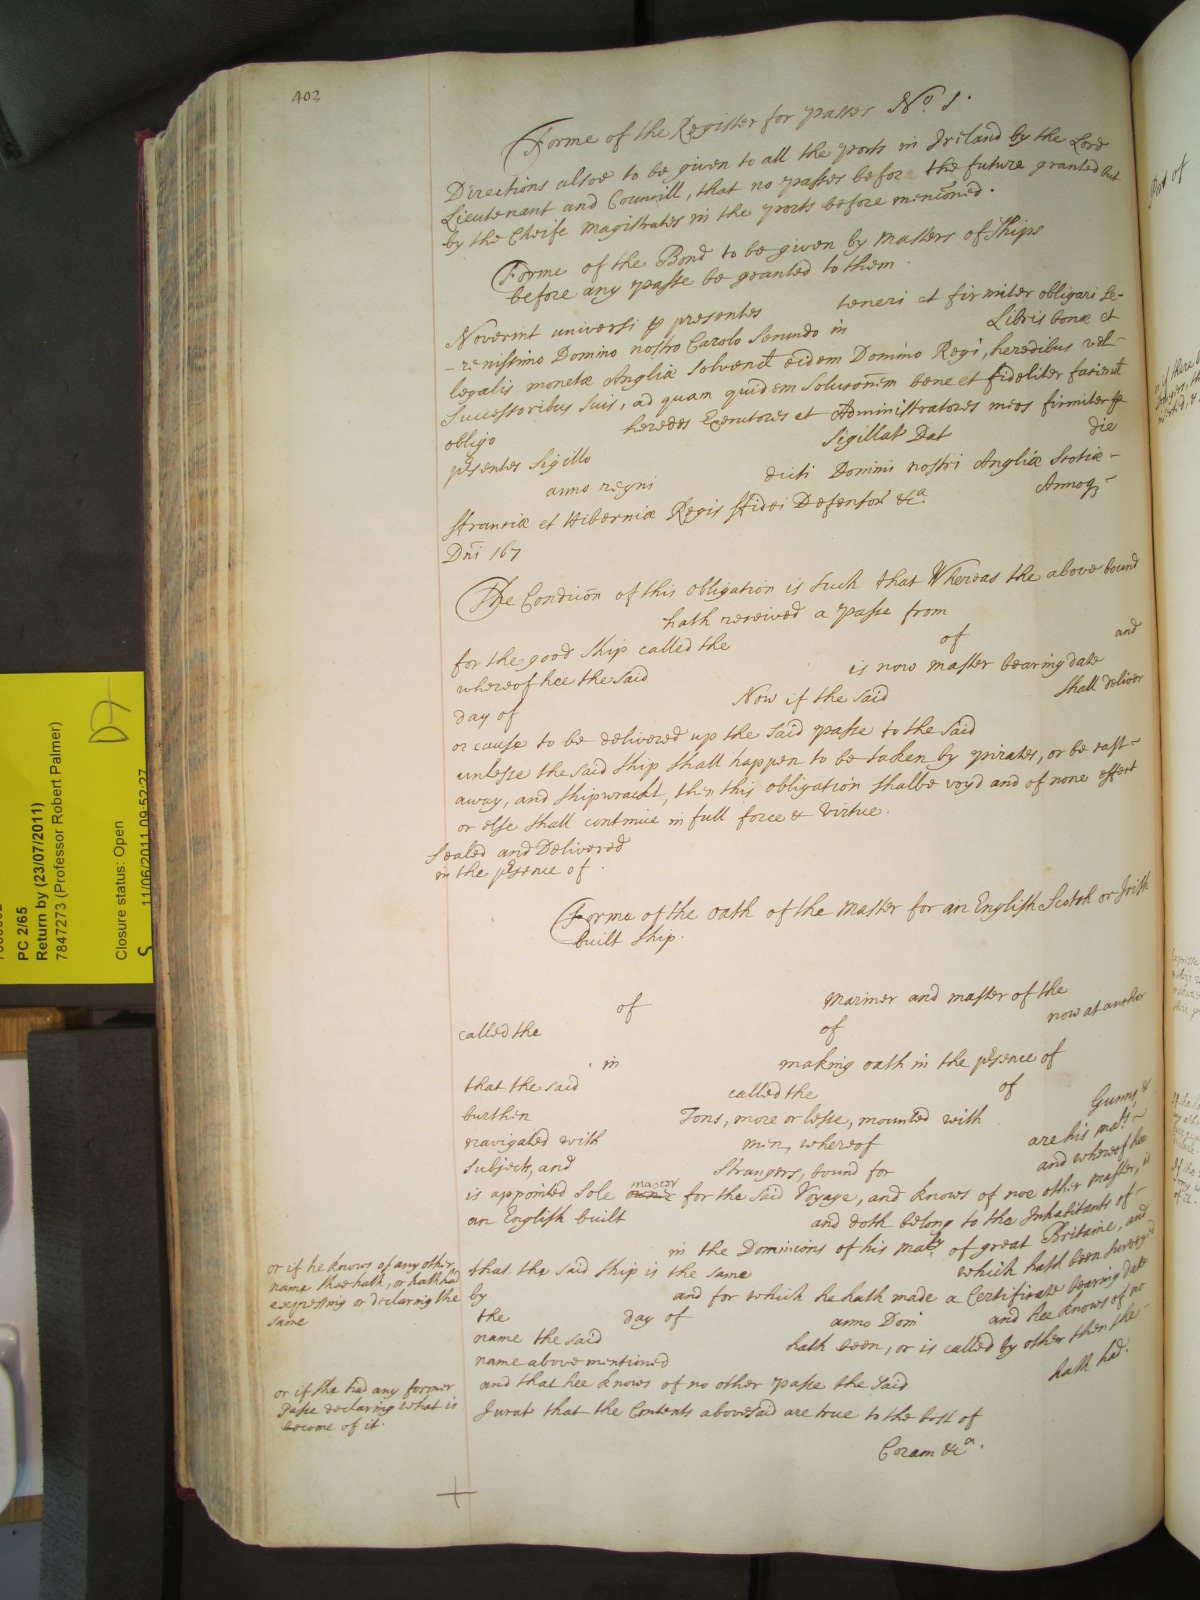 402
Forme of the Register for passes No. 1.
Directions alsoe to be given to all the ports in Ireland by the Lord
Lieutenant and Councill, that no passes before the future granted but
by the Cheife Magistrates in the ports before mencōned.
Forme of the Bond to be given by Masters of Ships
before any passe be granted to them
Noverint universi p presentes teneri et firmiter obligari Se-
-renissimo Domino nostro Carolo Secundo in Libris bonæ et
legalis monetæ Angliæ Solvend eidem Domino Regi, heredibus vel-
Successoribus suis, ad quam quidem Soluconem bene et fideliter faciend
obligo heredes Executores et Administratores meos firmiter p
psentes Sigillo Sigillat Dat die
anno regni dicti Domini nostri Angliæ Scotiæ -
ffranciæ et Hiberniæ Regis ffidei Defensor &ca. Annoq3
Dni 167
The Condicōn of this obligation is such that Whereas the above bound
hath received a passe from
for the good Ship called the of and
whereof hee the said is now master bearing date
day of Now if the said shall deliver
or cause to be delivered up the said passe to the said
unlesse the said ship shall happen to be taken by pirates, or be cast-
away, and shipwrackt, then this obligation shalbe voyd and of none effect
or else shall continue in full force & virtue.
Sealed and Delivered
in the psence of.
Forme of the oath of the Master for an English Scotch or Irish
built ship.
of Mariner and master of the
called the of now at anchor
in making oath in the psence of
that the said called the of
burthen Tons, more or lesse, mounted with Gunns, &
navigated with men, whereof are his mats -
Subjects, and Strangers, bound for and whereof hee
is appointed sole master for the said Voyage, and knows of noe other master, is
an English built and doth belong to the Inhabitants of -
in the Dominions of his maty. of great Britaine, and
that the said ship is the same which hath been Survey'd
by and for which he hath made a Certificate bearing date
the day of anno Dom and hee knows of no
name the said hath been, or is called by other then the -
name above mentioned
and that hee knows of no other passe the said hath had.
Jurat that the Contents abovesaid are true to the best of
Coram &ca.
or if he knows of any other
name shee hath, or hath had
expressing or declaring the
same
or if she had any former
passe declaring what is
become of it.
PC 2/65
Return by (23/07/2011)
7847273 (Professor Robert Palmer)
Closure status: Open
11/06/2011 09:52:27
S
D7